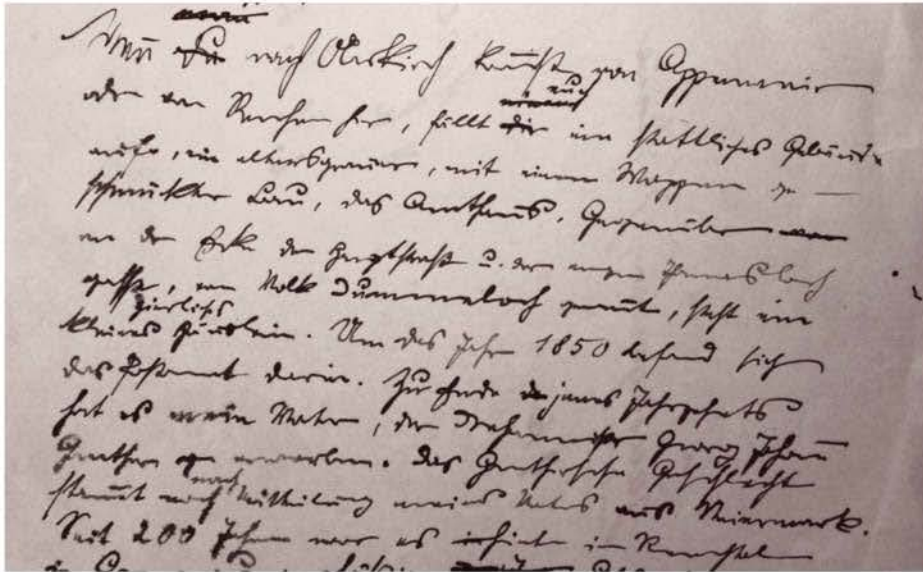 Wenn nach Oberkirch kommst, von Appenweier
oder von Renchen her, fällt euch ein stattliches Gebäude
auf, ein altersgrauer, mit einem Wappen ge-
schmückter Bau, das Amthaus. Gegenüber
an der Ecke der Hauptstraße u. der engen
gasse, vom Volk Dummeloch genannt, steht ein
kleines zierliches Häuslein. Um das Jahr 1850 befand sich
das Postamt darin. Zu Ende jenes Jahrzehnts
hat es mein Vater, der Georg Johann
erworben. Das Geschlecht
stammt nach Mitteilung meines Vaters aus Steiermark.
Seit 200 Jahren war es im Renchtal